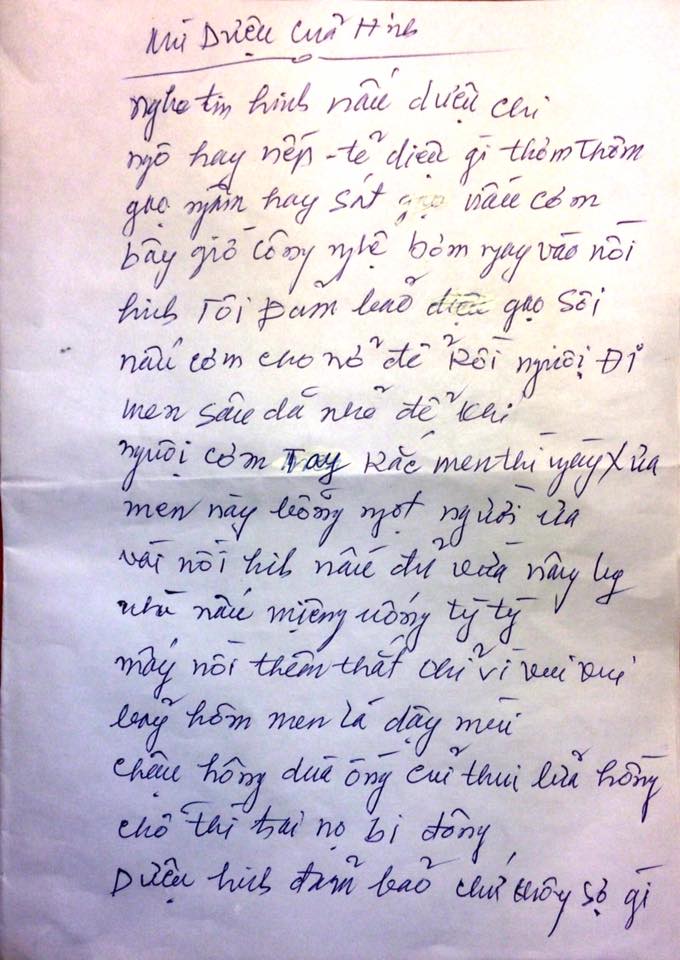 Mùi Diệu Của Hinh
nghe tin hinh nấu diệu chi
ngô hay nếp - tẻ diệu gì thơm thơm
gạo ngân hay sát gạo nấu cơm
bây giờ công nghệ bơm ngay vào nồi
hinh Tôi Đảm bảo diệu gạo Sôi
nấu cơm cho nở để Rồi nguội Đi
men Sâu đã nhỏ để khi
nguội cơm Tay Rắc men thì ngày Xửa
men này bỗng ngọt người ưa
vài nồi hih nấu đủ vừa
nhà nấu miệng uống tỳ tỳ
mấy nồi thêm thắt chỉ vì vui vui
bảy hôm men lá dậy mùi
chậu hông đưa ống củi thui lửa hồng
chỗ thì
Diệu hinh đảm bảo chứ không sợ gì